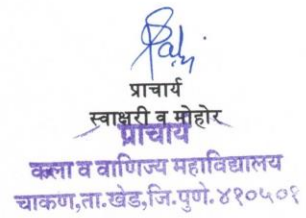 प्राचार्य
स्वाक्षरी व मोहोर
प्राचार्य
कला व वाणिज्य महाविद्यालय
चाकण,ता.खेड,जि.पुणे.४१०५०१